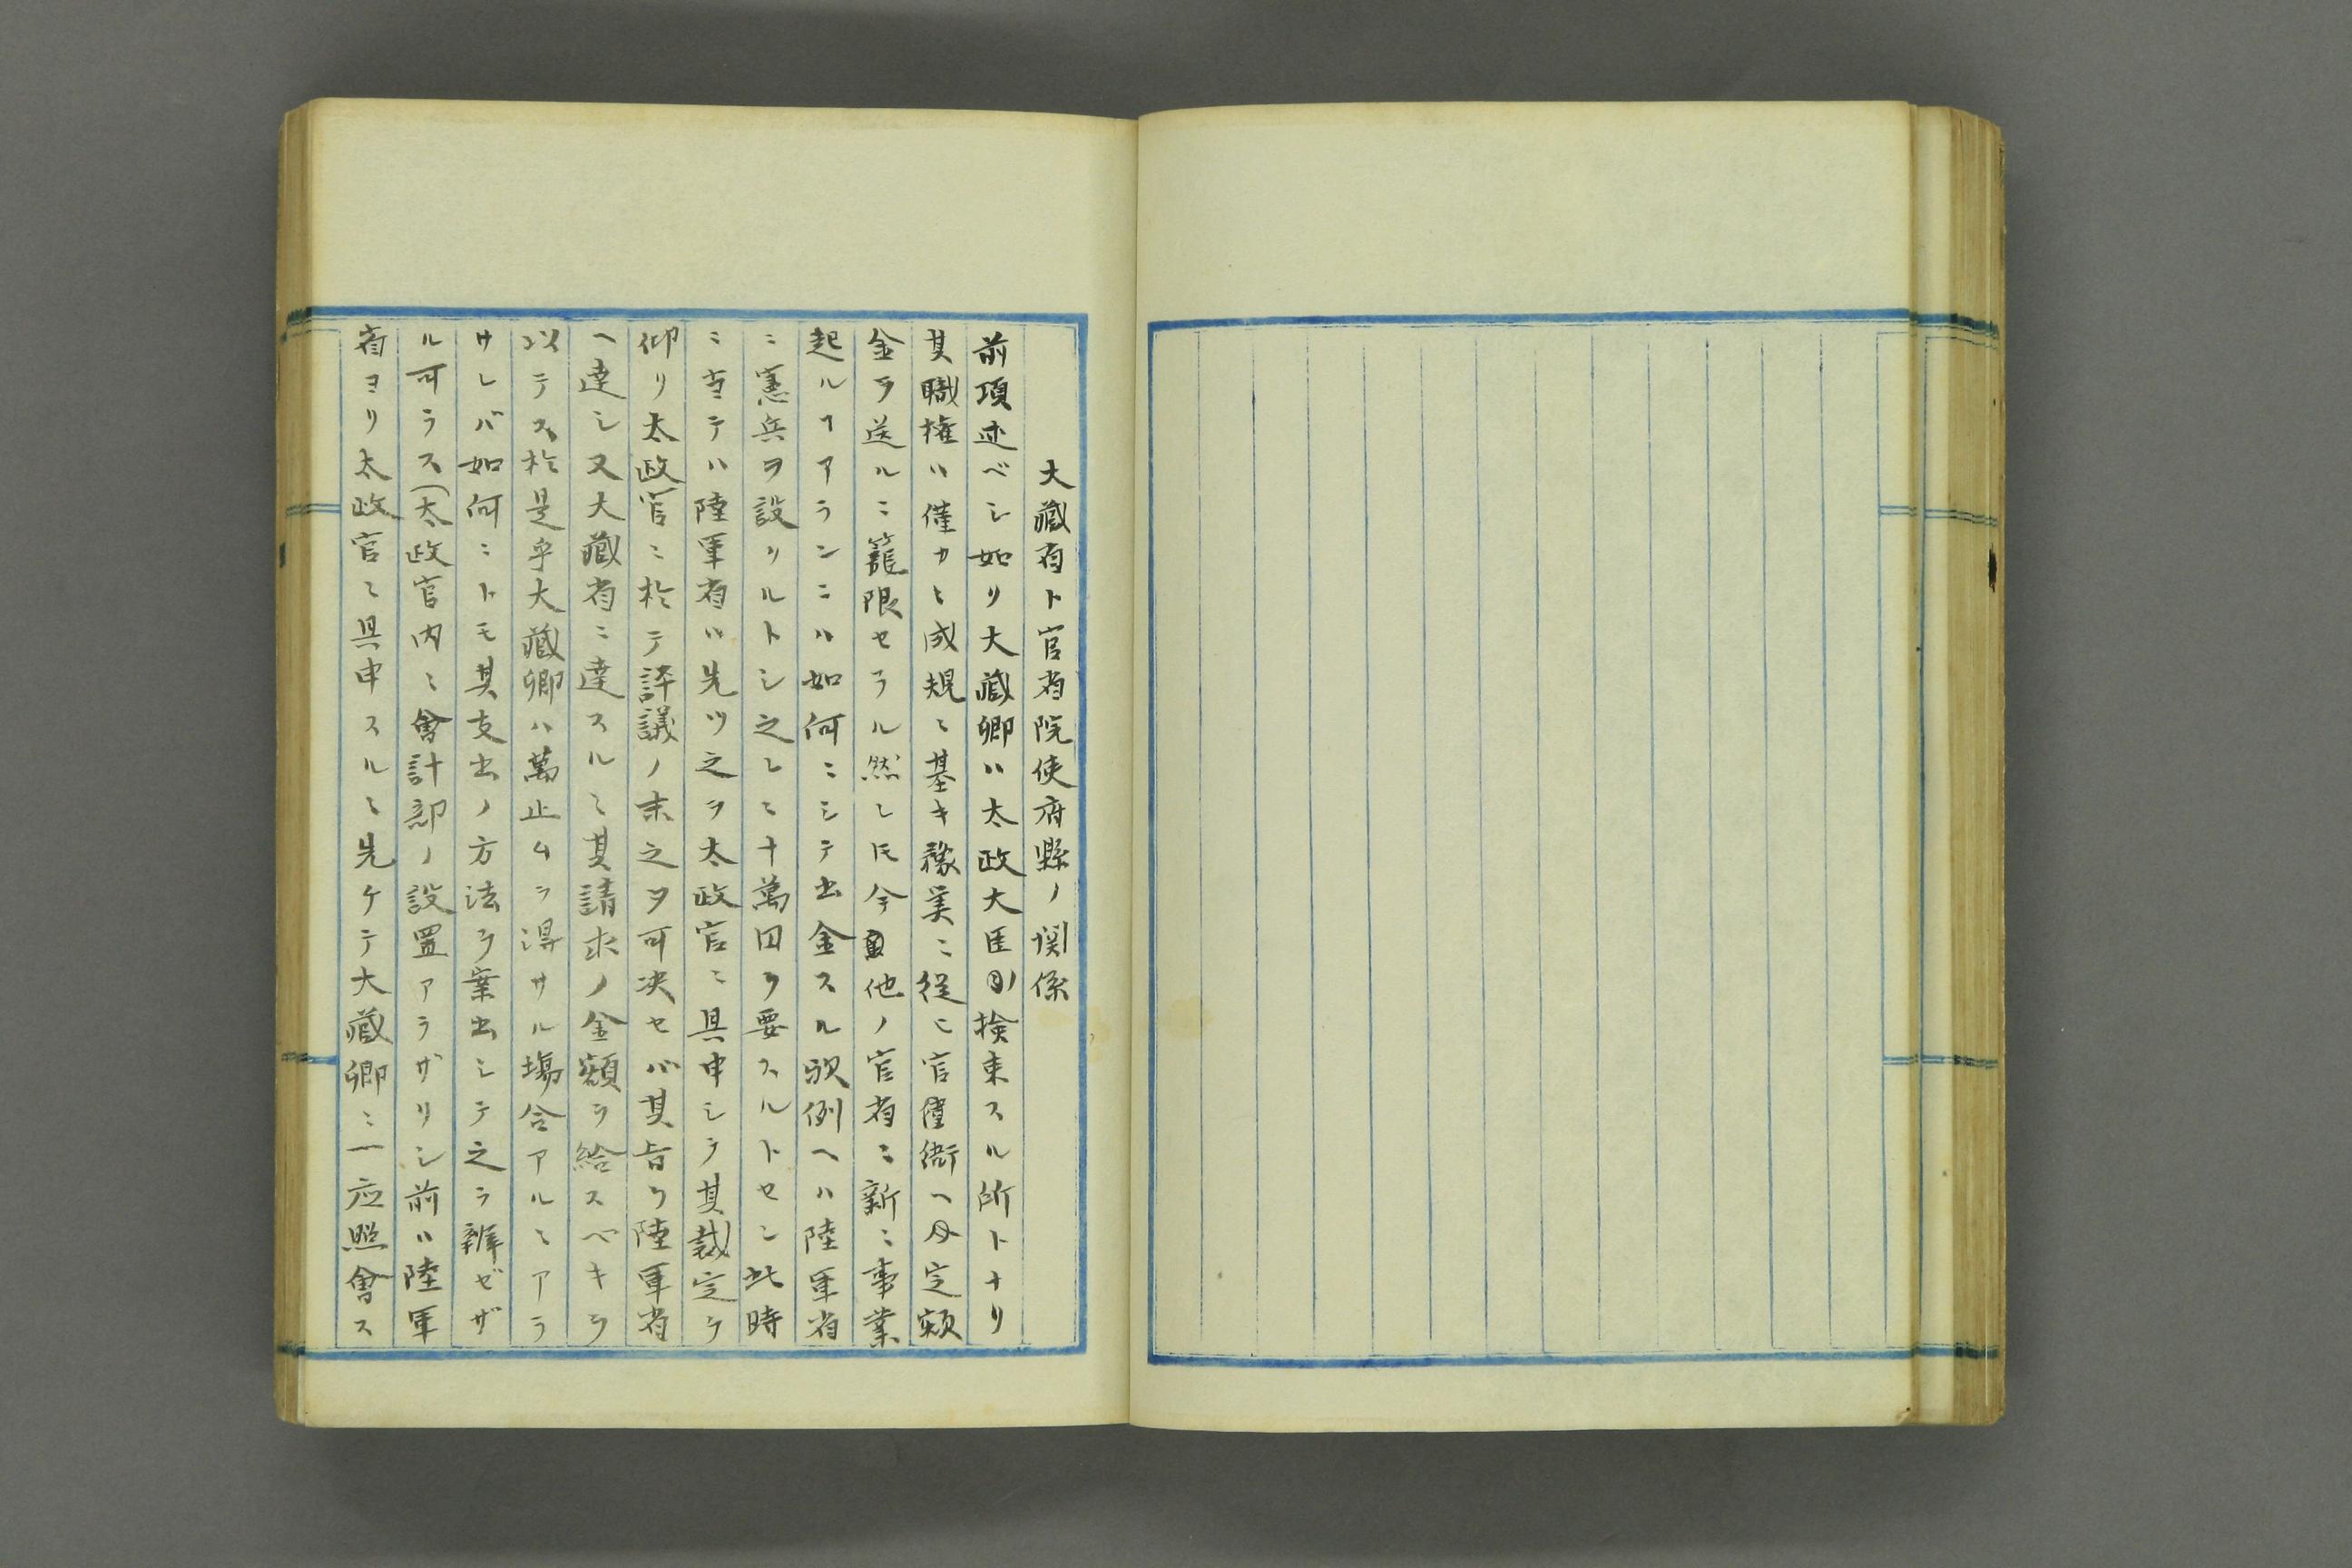 大藏省ト官省院使府縣ノ関係
前項述ベシ如リ大藏卿ハ太政大臣ノ検束スル所トナリ
其職権ハ僅カニ成規ニ基キ豫算ニ従ヒ官衙ヘ定額
金ヲ送ルニ籠限セラル然レ𪜈今他ノ官省ニ新ニ事業
起ルヿアランニハ如何ニシテ出金スル欤例ヘハ陸軍省
ニ憲兵ヲ設リルトシ之レニ十萬円ヲ要スルトセン此時
ニ当テハ陸軍省ハ先ツ之ヲ太政官ニ具申シテ其裁定ヲ
仰リ太政官ニ於テ評議ノ末之ヲ可决セバ其旨ヲ陸軍省
ヘ達シ又大藏省ニ達スルニ其請求ノ金額ヲ給スベキヲ
以テス於是乎大藏卿ハ萬止ムヲ得サル場合アルニアラ
サレバ如何ニトモ其支出ノ方法ヲ案出シテ之ヲ辨ゼザ
ル可ラス(太政官内ニ會計部ノ設置アラザリシ前ハ陸軍
省ヨリ太政官ニ具申スルニ先ケテ大藏卿ニ一応照會ス